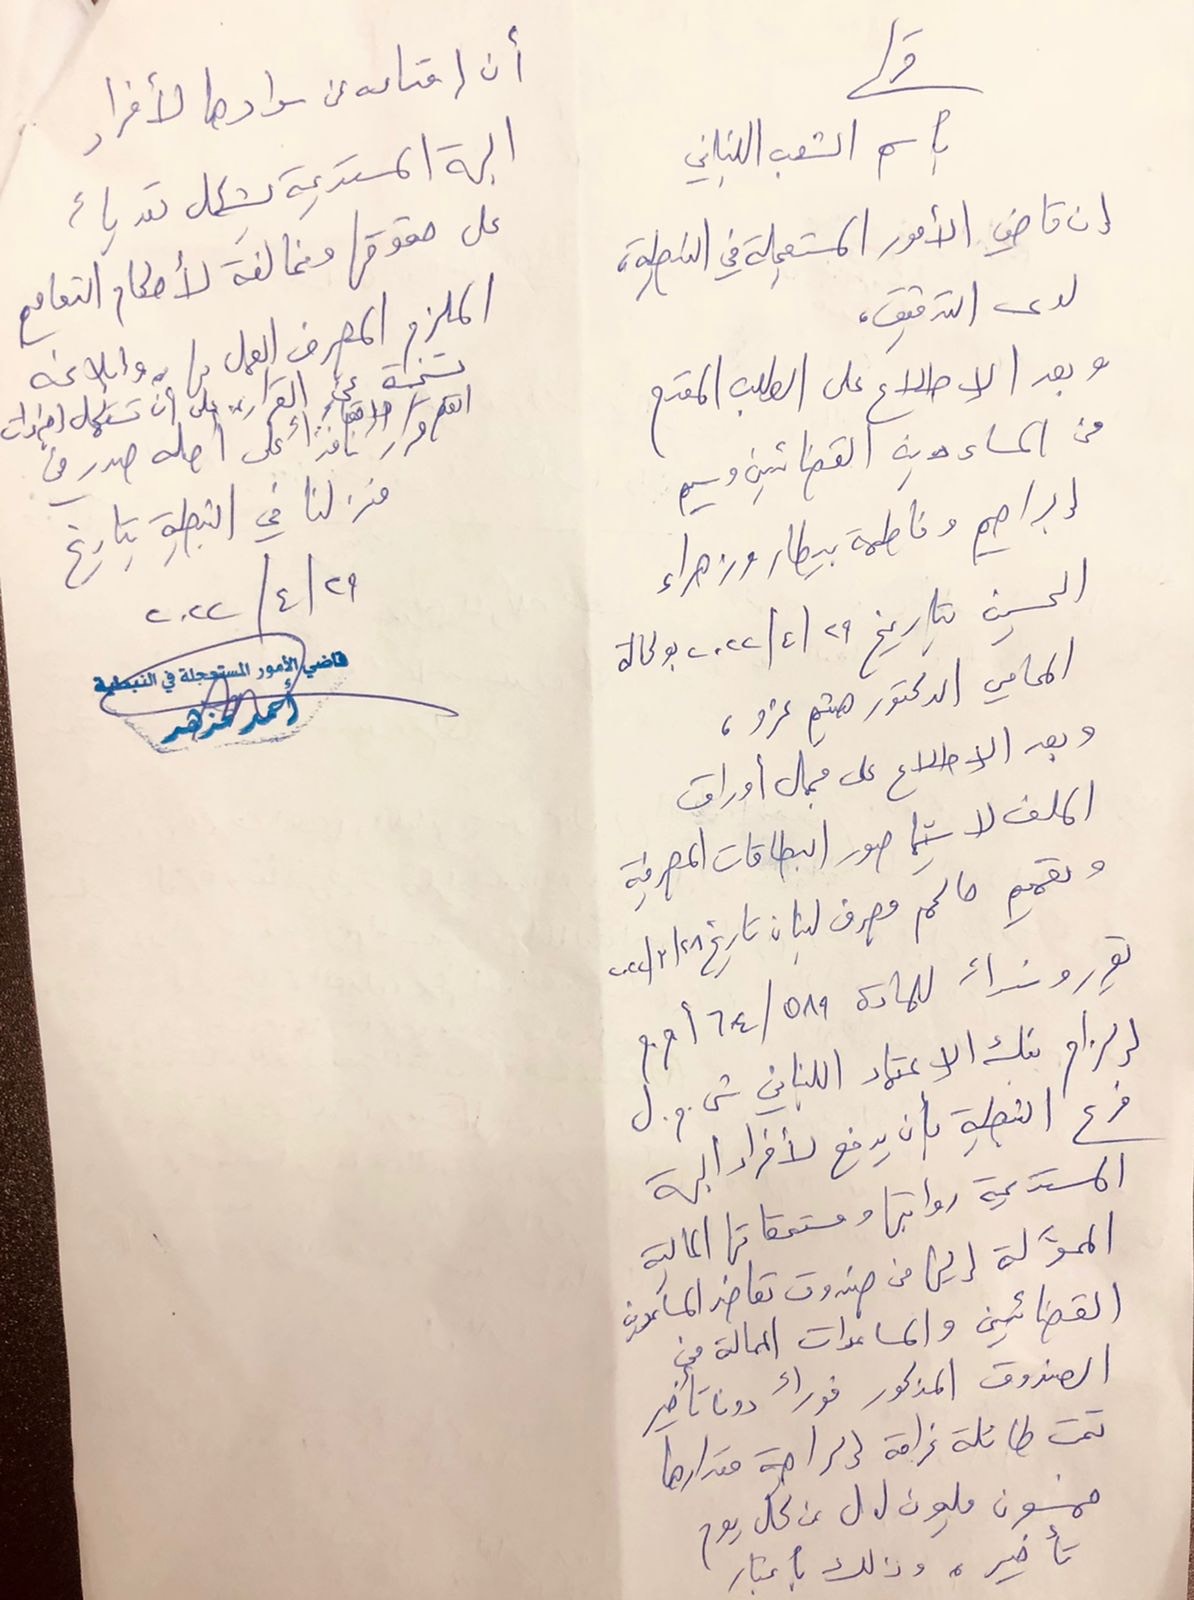 قرار
باسم الشعب اللبناني
إن قاضي الأمور المستعجلة في النبطية،
لدى التدقيق،
وبعد الاطلاع على الطلب المقدم
من المساعدين القضائيين وسيم
إبراهيم وفاطمة بيطار وزهراء
الحسين بتاريخ ٢٩/٤/٢٠٢٢ بوكالة
المحامي الدكتور هيثم عزو،
وبعد الاطلاع على مجمل أوراق
الملف لا سيّما صور البطاقات المصرفية
وتعميم حاكم مصرف لبنان تاريخ ٢٨/٣/٢٠٢٢
نقرر وسنداً للمادة ٥٨٩/٦٠٤ أ.م.م
إلزام بنك الاعتماد اللبناني ش.م.ل
فرع النبطية بأن يدفع لأفراد الجهة
المستدعية رواتبها ومستحقاتها المالية
المحوّلة إليها من صندوق تعاضد المساعدين
القضائيين والمساعدات المحالة من
الصندوق المذكور فوراً دون تأخير
تحت طائلة غرامة إكراهية مقدارها
خمسون مليون ل.ل عن كل يوم
تأخير، وذلك باعتبار
أن امتناعه عن سدادها لأفراد
الجهة المستدعية يشكل تعدياً
على حقوقها ومخالفة لأحكام التعاميم
الملزم المصرف العمل بها، وإبلاغه
نسخة عن القرار، على أن تستكمل إجراءات
القرار لاحقاً
قرار نافذاً على أصله صدر في
منزلنا في النبطية بتاريخ
٢٩/٤/٢٠٢٢
قاضي الأمور المستعجلة في النبطية
أحمد مزهر